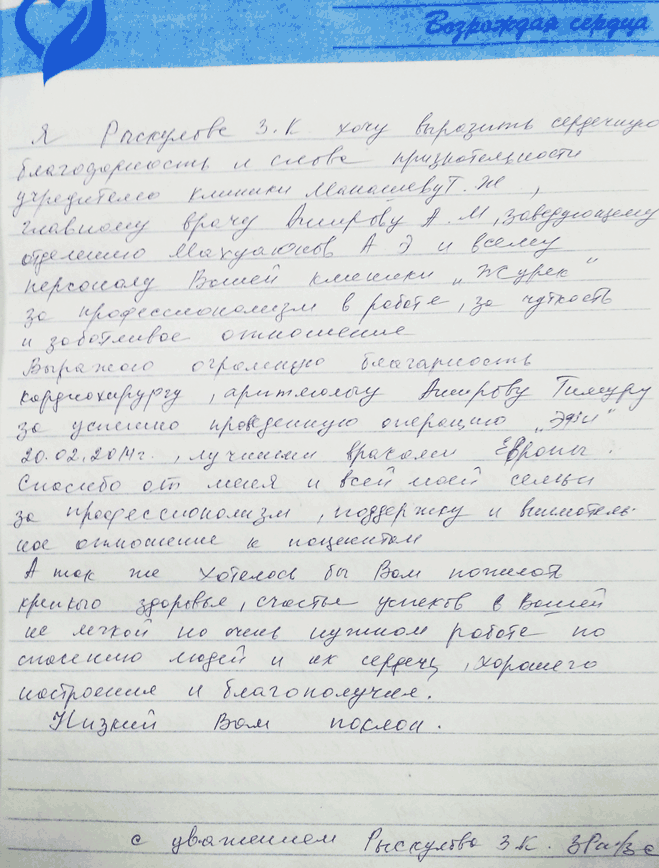 Возрождая сердца
Я Рыскулова З.К хочу выразить сердечную
благодарность и слова признательности
учредителю клиники Манашеву Т.Ж,
главному врачу Амирову А.М, заведующему
отделению А Э и всему
персоналу Вашей клиники „Журек“
за профессионализм в работе, за чуткость
и заботливое отношение
Выражаю огромную благарность
кардиохирургу, аритмологу Амирову Тимуру
за успешно проведенную операцию „ЭФИ“
20.02.2014г., лучшими врачами Европы.
Спасибо от меня и всей моей семьи
за профессионализм, поддержку и вниматель-
ное отношение к пациентам
А так же хотелось бы Вам пожелать
крепкого здоровья, счастья успехов в Вашей
не легкой но очень нужной работе по
спасению людей и их сердец, хорошего
настроения и благополучия.
Низкий Вам поклон.
с уважением Рыскулова З.К.